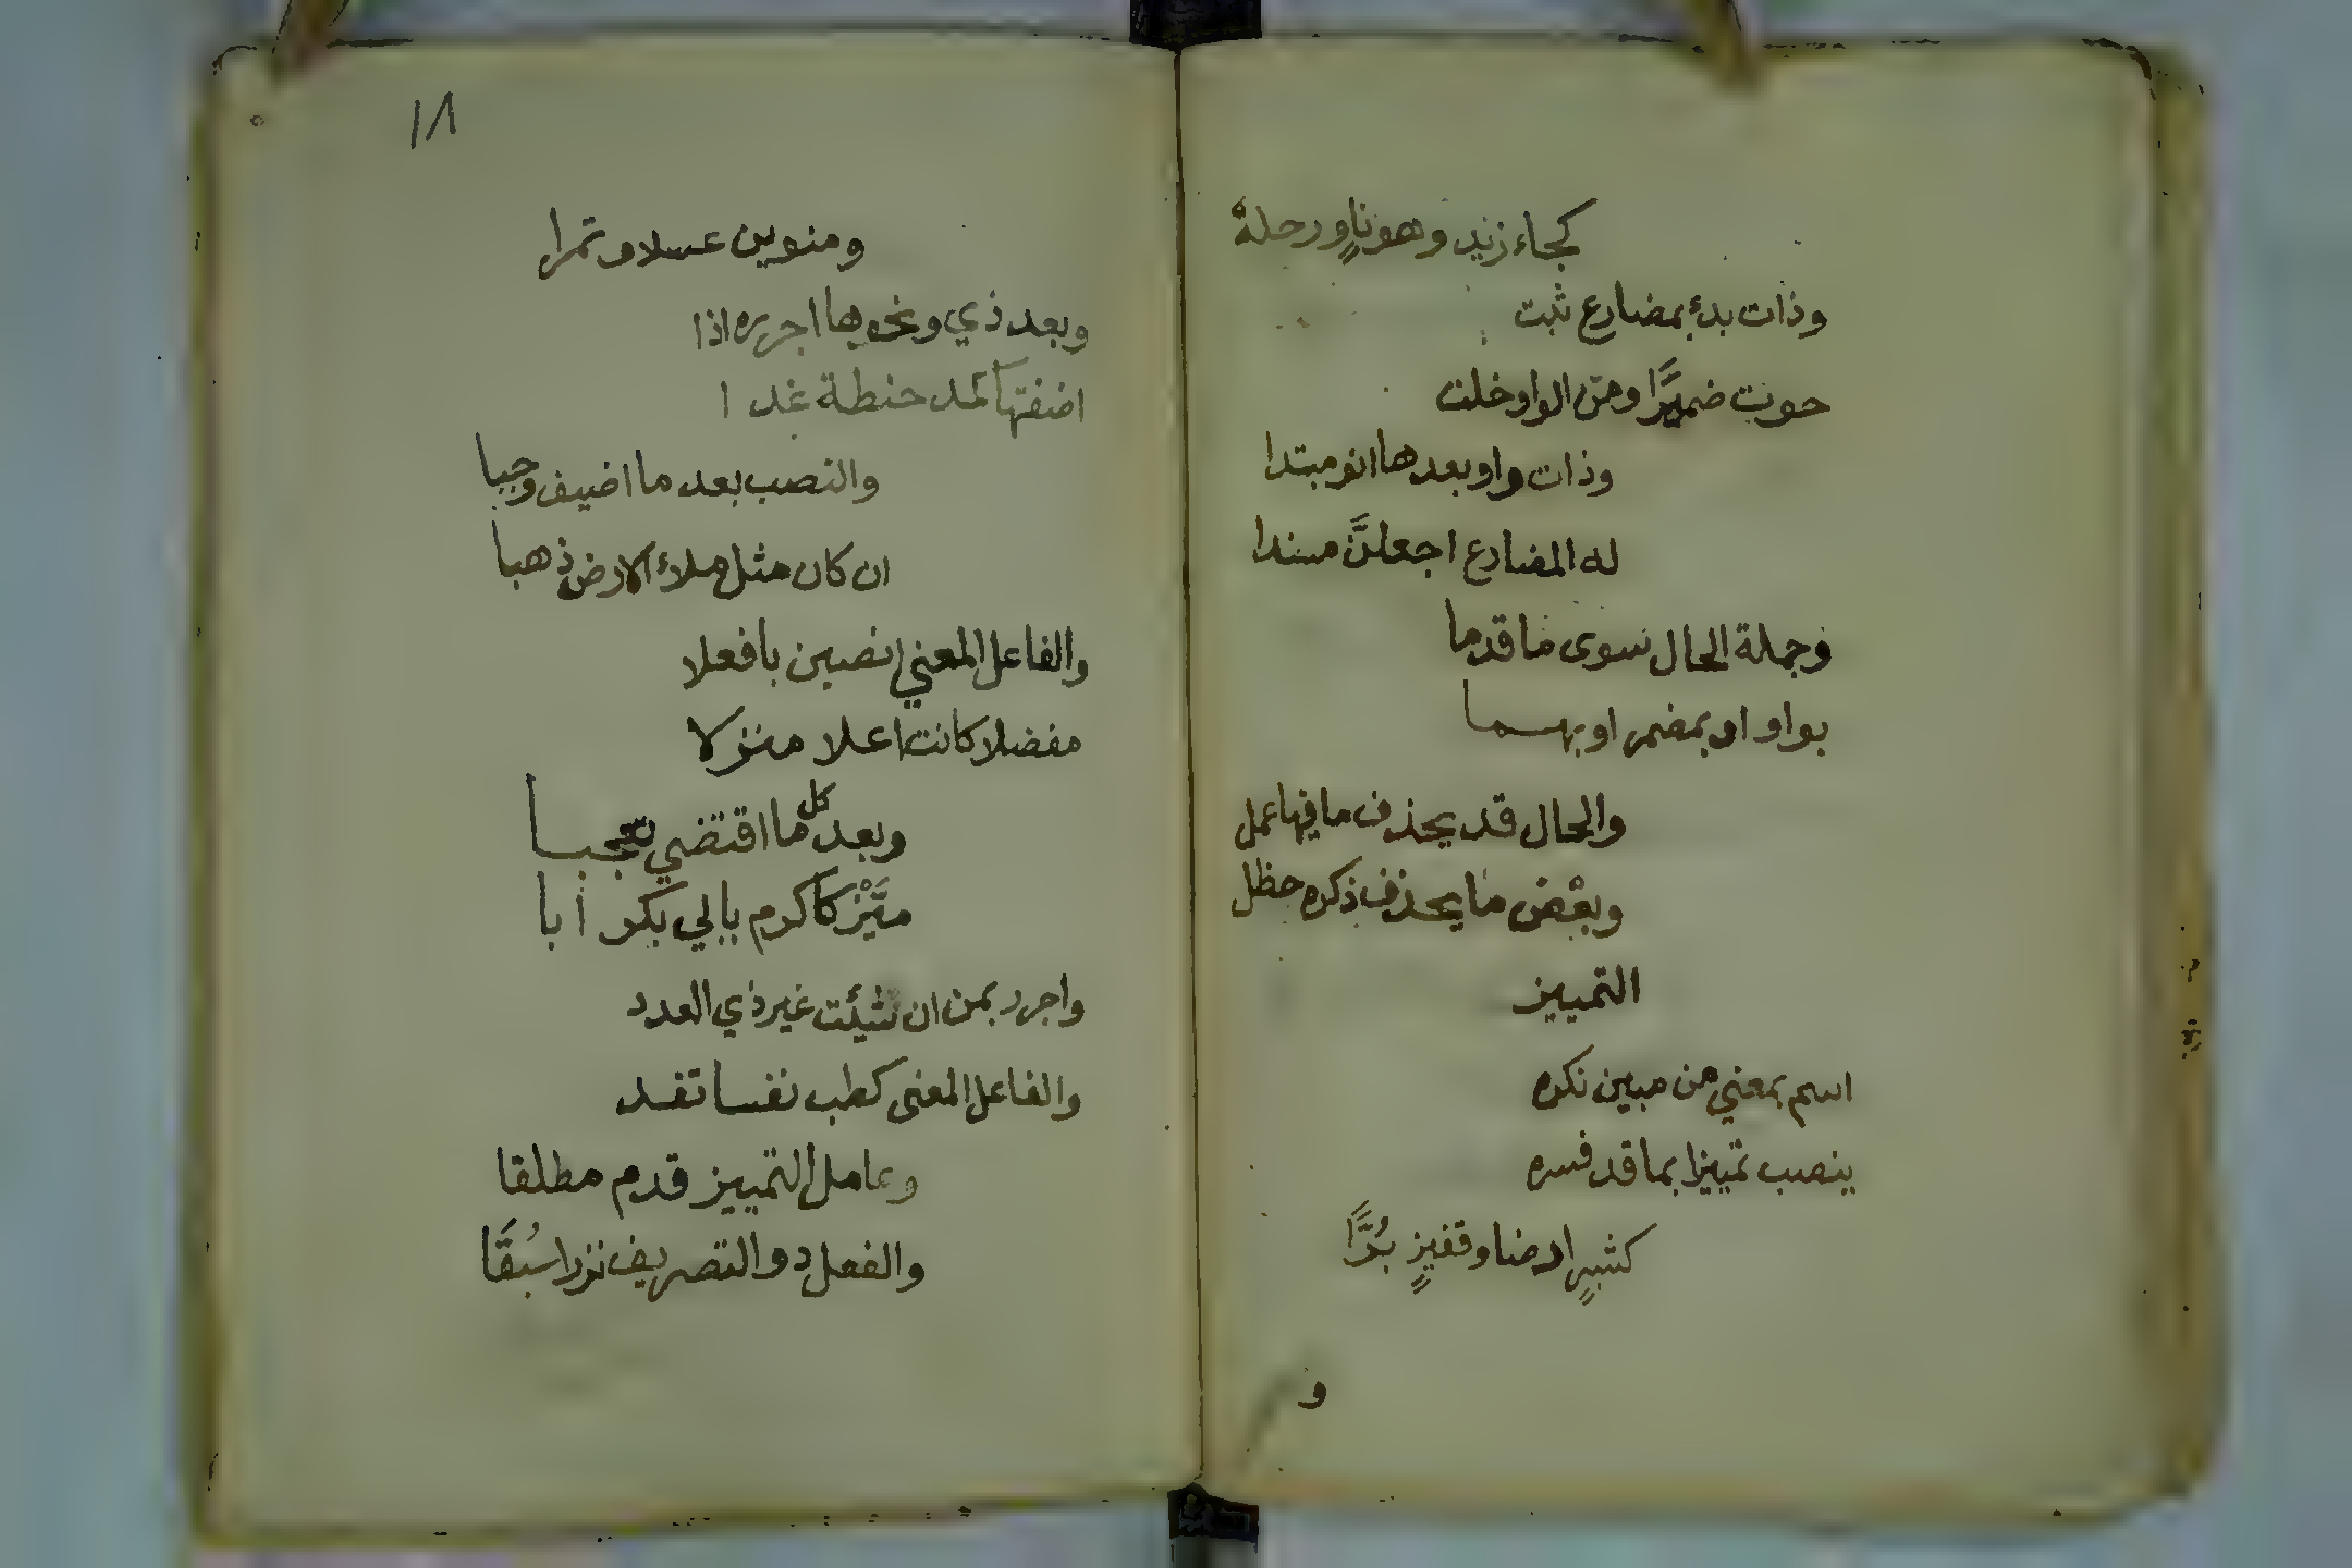 كجاء زيد وهو ناوٍ رحله
وذات بدء بمضارع ثبت
حوت ضميرًا ومن الواو خلت
وذات واو بعدها انو مبتدا
له المضارع اجعلنَّ مسندا
وجملة الحال سوى ما قدما
بواو او بمضمر او بهما
والحال قد يحذف ما فيها عمل
وبعْض ما يحذف ذكره حظل
التمييز
اسم بمعني من مبين نكره
ينصب تمييزا بما قد فسره
كشبرٍ ارضا وقفيزٍ بُرًّا
و
١٨
ومنوين عسلا وتمرا
وبعد ذي ونحوها اجرره اذا
اضفتها كمد حنطة غدا
والنصب بعد ما اضيف وجبا
ان كان مثل ملء الارض ذهبا
والفاعل المعني انصبن بافعلا
مفضلا كانت اعلا منزلا
وبعد كل ما اقتضي تعجبا
ميَّزْ كاكرم بابي بكر أبا
واجرر بمن ان شئت غير ذي العدد
والفاعل المعنى كطب نفسا تفد
وعامل التمييز قدم مطلقا
والفعل ذو التصريف نزرا سُبقًا